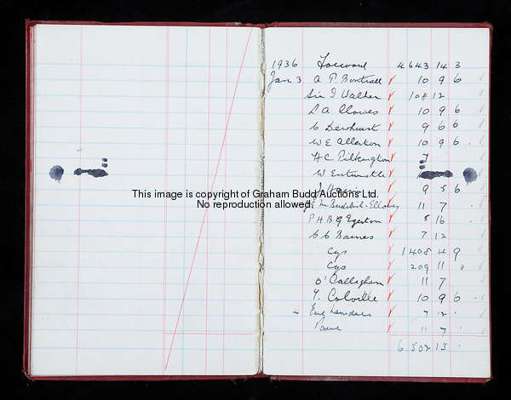 1936 Forward 4643 14 3
Jan. 3 A P 10 9 6
Sir I Walker 108 12
10 9 6
C Dewhurst 9 6 6
W E Allerton 10 9 6
H C Pilkington 7
W Entwistle
This image is copyright of Graham Budd Auctions Ltd.
No reproduction allowed.
9 5 6
11 7
P H B G Egerton 5 16
C C Barnes 7 12
Cgs 1405 4 9
Cgs 209 11
O'Callaghan 11 7
Colville 10 9 6
7 12
11 7
6502 15